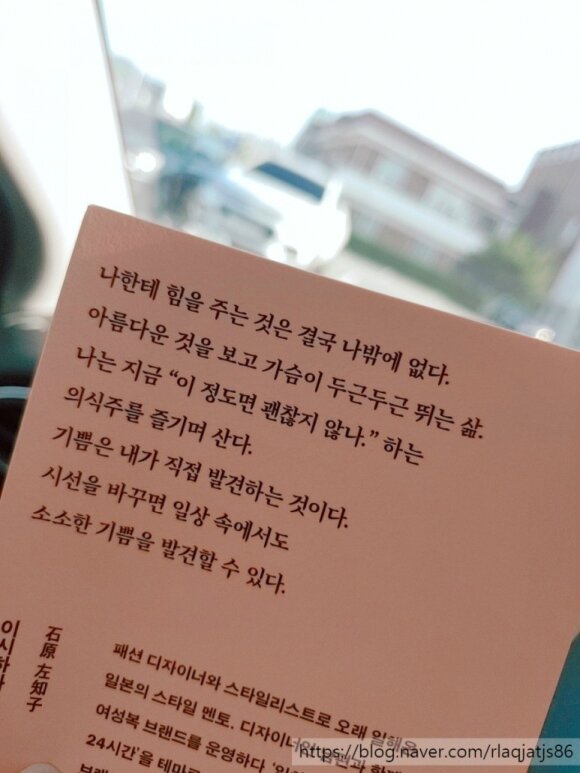 나한테 힘을 주는 것은 결국 나밖에 없다.
아름다운 것을 보고 가슴이 두근두근 뛰는 삶.
나는 지금 “이 정도면 괜찮지 않나.” 하는
의식주를 즐기며 산다.
기쁨은 내가 직접 발견하는 것이다.
시선을 바꾸면 일상 속에서도
소소한 기쁨을 발견할 수 있다.
이시하라
石原 左知子
패션 디자이너와 스타일리스트로 오래 일해온
일본의 스타일 멘토. 디자이너인 남편과 함께
여성복 브랜드를 운영하다
24시간’을 테마로
https://blog.naver.com/rlaqjatjs86